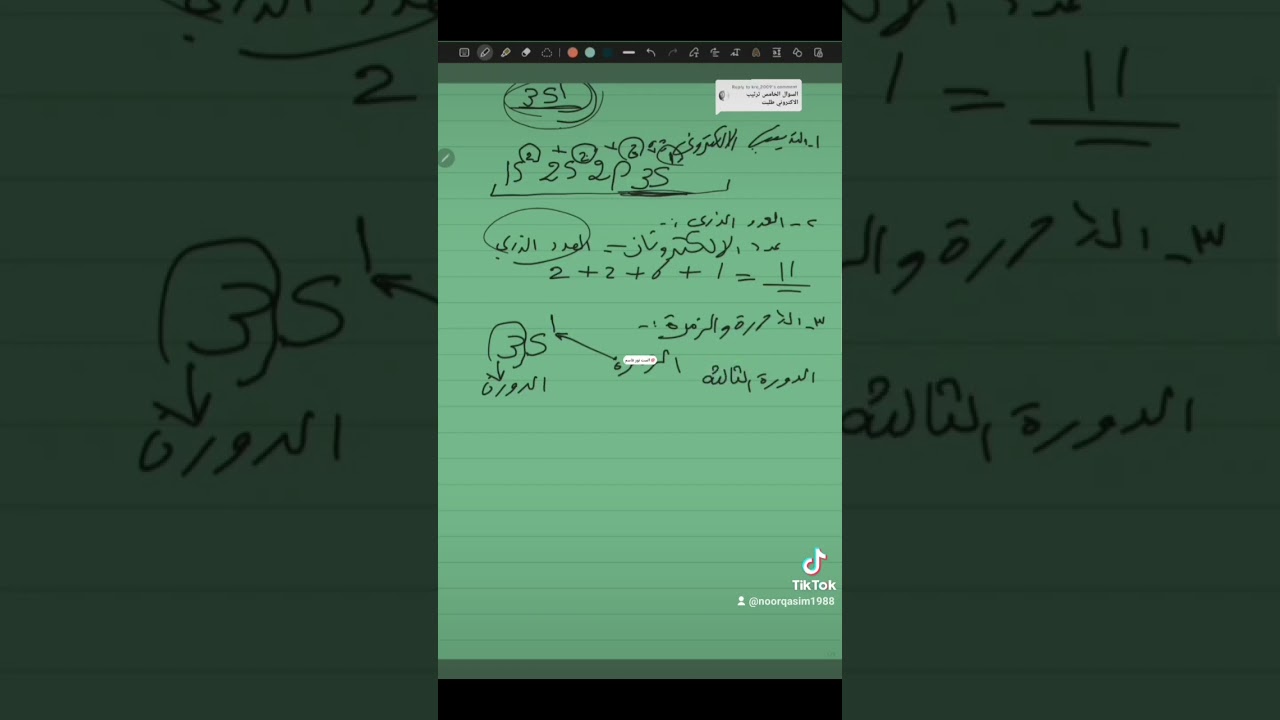 Reply to
السؤال الخامس ترتيب
الالكتروني طلبت
3S¹
١ـ الترتيب الالكتروني
1S² 2S² 2P⁶ 3S¹
٢ـ العدد الذري :ـ
عدد الالكترونات = العدد الذري
2 + 2 + 6 + 1 = 11
٣ـ الدورة والزمرة :ـ
3S¹
الزمرة
الدورة الثالثة
الدورة
TikTok
@noorqasim1988